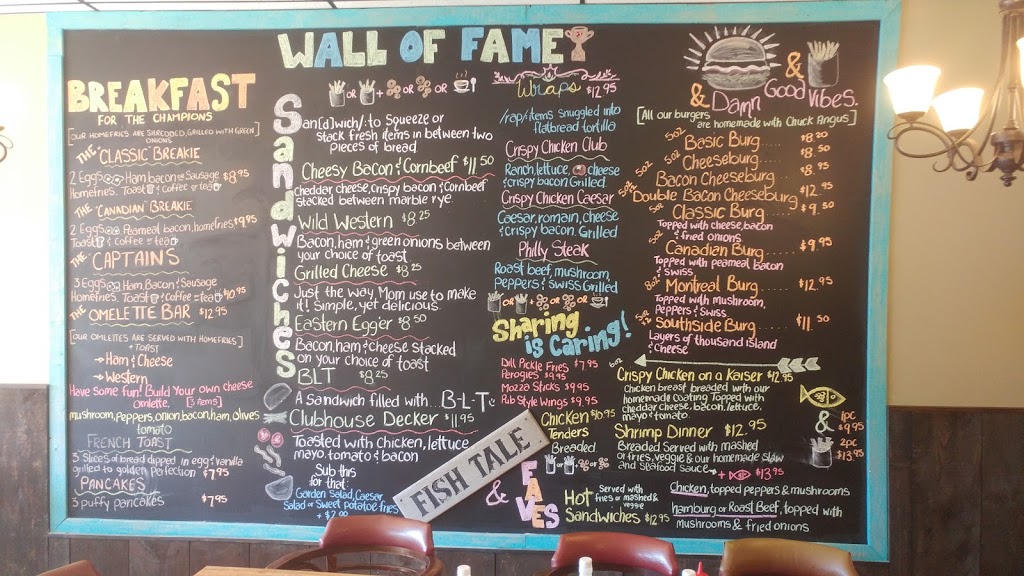 WALL OF FAME
BREAKFAST
FOR THE CHAMPIONS
[OUR HOMEFRIES ARE SHREDDED, GRILLED WITH GREEN ONIONS]
THE "CLASSIC BREAKIE
2 Eggs Ham bacon or Sausage $8.95
Homefries. Toast & Coffee or tea
THE "CANADIAN" BREAKIE
2 Eggs Peameal bacon, homefries $9.95
Toast & coffee or tea
THE "CAPTAINS
3 Eggs Ham, Bacon & Sausage
Homefries. Toast & Coffee or tea $10.95
THE "OMELETTE BAR $12.95
[OUR OMLETTES ARE SERVED WITH HOMEFRIES & TOAST]
→ Ham & Cheese
→ Western
Have some fun! Build Your own cheese
omlette. [3 items]
mushroom, peppers, onion, bacon, ham, olives
tomato
FRENCH TOAST
3 Slices of bread dipped in egg & vanilla
grilled to golden perfection $7.95
PANCAKES
3 puffy pancakes $7.95
Sandwiches
OR + OR OR OR
San(d)wich/: to Squeeze or
stack fresh items in between two
pieces of bread
Cheesy Bacon & Cornbeef $11.50
Cheddar cheese, crispy bacon & Cornbeef
stacked between marble rye
Wild Western $8.25
Bacon, ham & green onions between
your choice of toast
Grilled Cheese $8.25
Just the way Mom use to make
it! Simple, yet delicious.
Eastern Egger $8.50
Bacon, ham & cheese stacked
on your choice of toast
BLT $8.25
A sandwich filled with.. B-L-T
Clubhouse Decker $11.95
Toasted with chicken, lettuce
mayo, tomato & bacon
Sub this
for that:
Garden Salad, Caesar
Salad or Sweet potatoe fries
+ $2.00
Wraps $12.95
/rap/: items snuggled into
flatbread tortilla
Crispy Chicken Club
Ranch, lettuce, cheese
& crispy bacon. Grilled
Crispy Chicken Caesar
Caesar, romain, cheese
& crispy bacon. Grilled
Philly Steak
Roast beef, mushroom,
peppers & swiss Grilled
OR + OR OR OR
Sharing
is Caring!
Dill Pickle Fries $7.95
Perogies $9.95
Mozza Sticks $9.95
Pub Style Wings $9.95
Chicken $10.95
Tenders
Breaded.
FISH TALE
& FAVES
Hot Served with fries or mashed & veggie
Sandwiches $12.95
&
& Damn Good Vibes.
[All our burgers
are homemade with Chuck Angus]
5oz Basic Burg..... $8.20
5oz Cheeseburg..... $8.50
5oz Bacon Cheeseburg..... $8.95
Double Bacon Cheeseburg $12.95
5oz Classic Burg..... $9.50
Topped with cheese, bacon
& fried onions
5oz Canadian Burg..... $9.95
Topped with peameal Bacon
& swiss
8oz Montreal Burg..... $12.95
Topped with mushroom,
Peppers & Swiss
8oz Southside Burg..... $11.50
Layers of thousand island
& cheese
Crispy Chicken on a Kaiser $12.95
Chicken breast breaded with our
homemade coating. Topped with
cheddar cheese, bacon, lettuce,
mayo & tomato
Shrimp Dinner $12.95
Breaded Served with mashed
or fries, veggie & our homemade slaw
and seafood sauce
+ $13.95
&
1pc $9.95
2pc $13.95
Chicken, topped peppers & mushrooms
hamburg or Roast Beef, topped with
mushrooms & fried onions